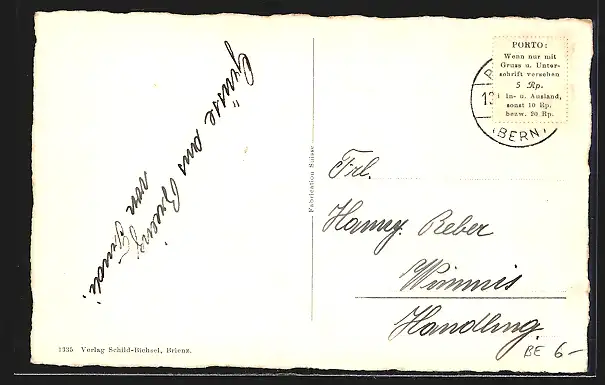 Grüsse aus Brienz
von Trudi.
Fabrication Suisse
PORTO:
Wenn nur mit
Gruss u. Unter-
schrift versehen
5 Rp.
in- u. Ausland,
sonst 10 Rp.
bezw. 20 Rp.
13
(BERN)
Frl.
Hanny. Reber
Wimmis
Handlung.
BE 6-
1335 Verlag Schild-Bichsel, Brienz.